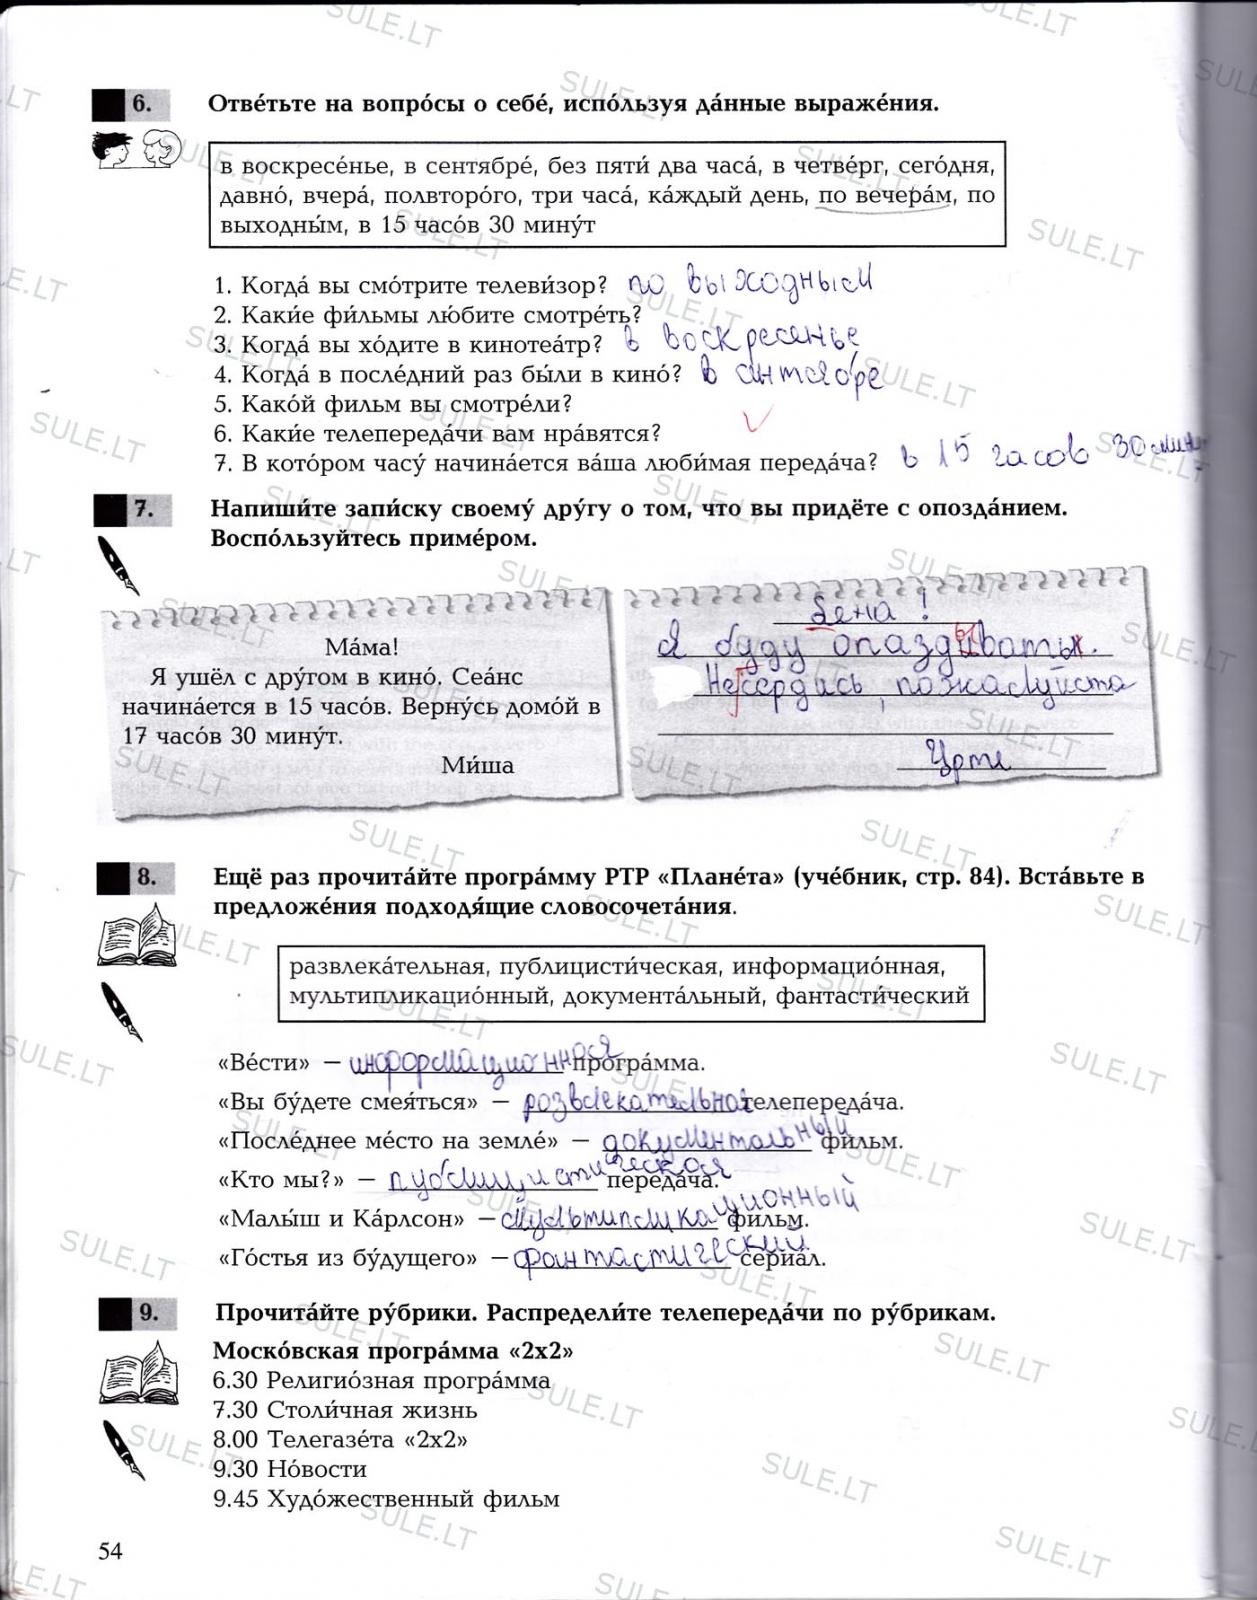 6. Отве́тьте на вопро́сы о себе́, испо́льзуя да́нные выраже́ния.
в воскресе́нье, в сентябре́, без пяти́ два часа́, в четве́рг, сего́дня,
давно́, вчера́, полвторо́го, три часа́, ка́ждый день, по вечера́м, по
выходны́м, в 15 часо́в 30 мину́т
1. Когда́ вы смо́трите телеви́зор? по выходным
2. Каки́е фи́льмы лю́бите смотре́ть?
3. Когда́ вы хо́дите в кинотеа́тр? в воскресенье
4. Когда́ в после́дний раз бы́ли в кино́? в синтября
5. Како́й фильм вы смотре́ли?
6. Каки́е телепереда́чи вам нра́вятся?
7. В кото́ром часу́ начина́ется ва́ша люби́мая переда́ча? в 15 часов 30 мин
7. Напиши́те запи́ску своему́ дру́гу о том, что вы придёте с опозда́нием.
Воспо́льзуйтесь приме́ром.
Ма́ма!
Я ушёл с дру́гом в кино́. Сеа́нс
начина́ется в 15 часо́в. Верну́сь домо́й в
17 часо́в 30 мину́т.
Ми́ша
Я буду опаздивать.
Не сердись, пожалуйста
8. Ещё раз прочита́йте програ́мму РТР «Плане́та» (уче́бник, стр. 84). Вста́вьте в
предложе́ния подходя́щие словосочета́ния.
развлека́тельная, публицисти́ческая, информацио́нная,
мультипликацио́нный, документа́льный, фантасти́ческий
«Ве́сти» – информационная програ́мма.
«Вы бу́дете смея́ться» – розвлекательная телепереда́ча.
«После́днее ме́сто на земле́» – документальный фильм.
«Кто мы?» – публицистическая переда́ча.
«Малы́ш и Ка́рлсон» – мультипликационный фильм.
«Го́стья из бу́дущего» – фантастический сериа́л.
9. Прочита́йте ру́брики. Распредели́те телепереда́чи по ру́брикам.
Моско́вская програ́мма «2х2»
6.30 Религио́зная програ́мма
7.30 Столи́чная жизнь
8.00 Телегазе́та «2х2»
9.30 Но́вости
9.45 Худо́жественный фильм
54
SULE.LT